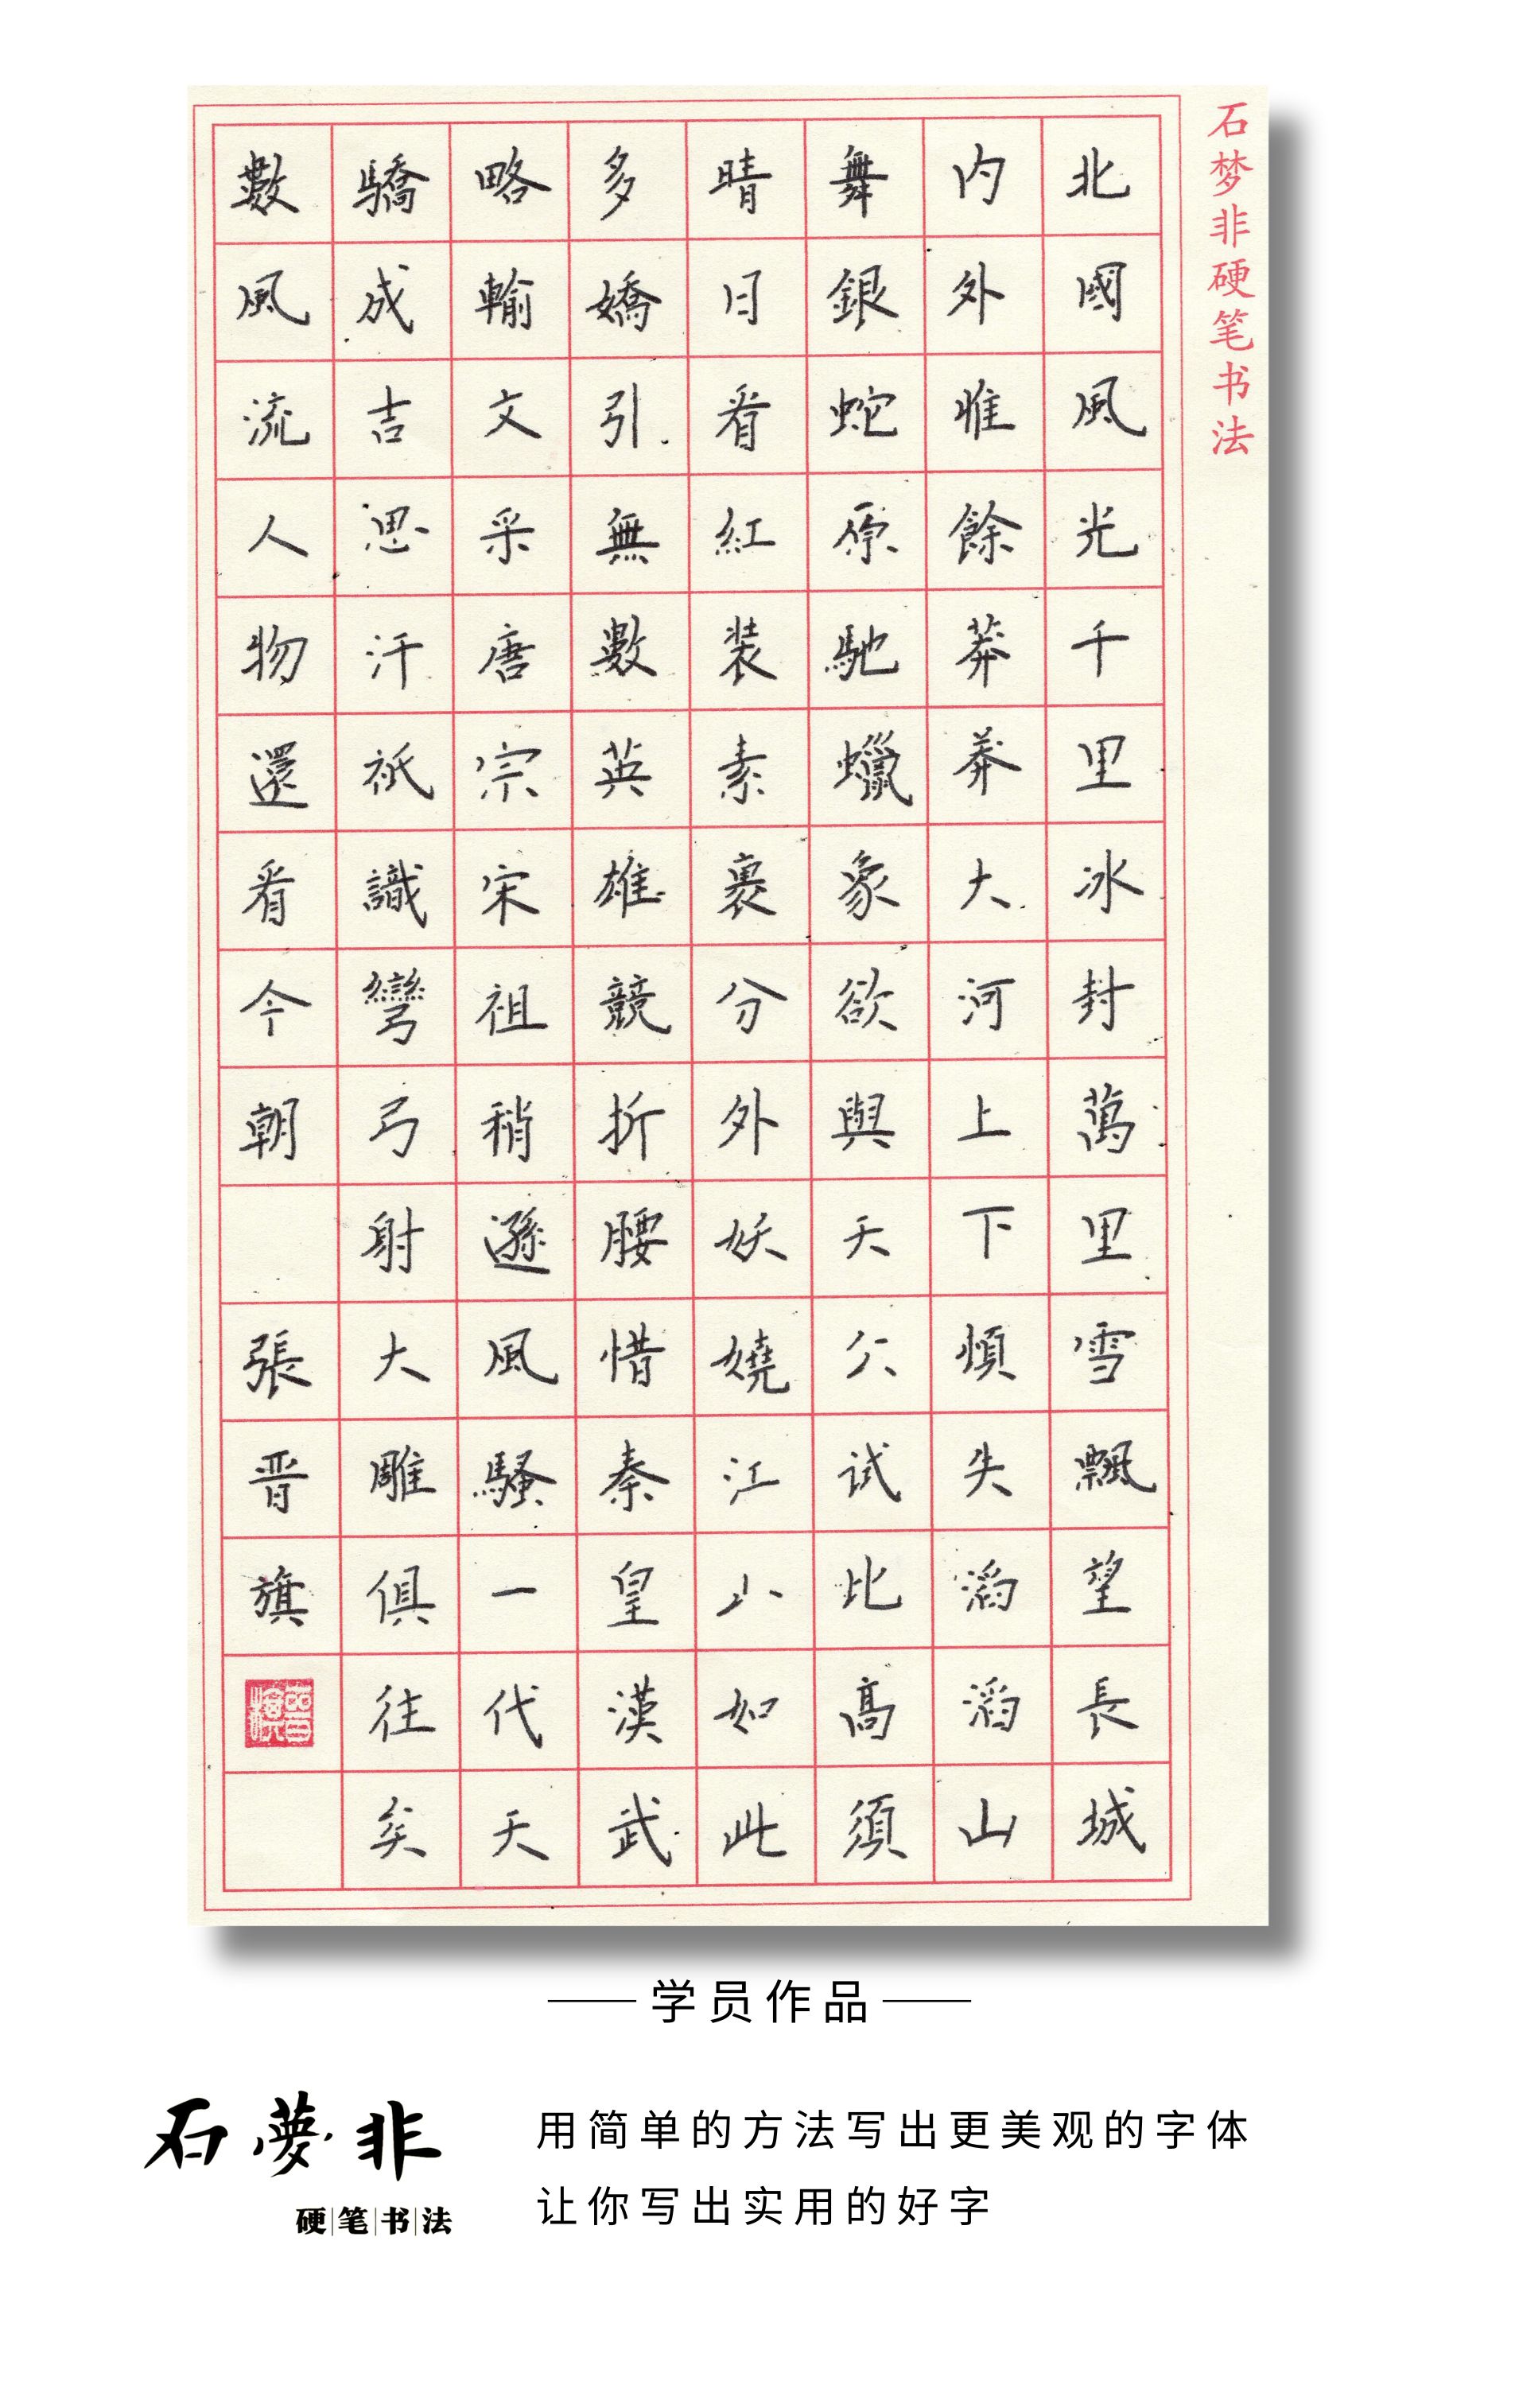 石梦非硬笔书法
北國風光千里冰封萬里雪飄望長城
内外惟餘莽莽大河上下頓失滔滔山
舞銀蛇原馳蠟象欲與天公试比高須
晴日看紅装素裹分外妖嬈江山如此
多嬌引無數英雄競折腰惜秦皇漢武
略輸文采唐宗宋祖稍遜風騷一代天
驕成吉思汗祇識彎弓射大雕俱往矣
數風流人物還看今朝 張晋旗
学员作品
石夢非
硬笔书法
用简单的方法写出更美观的字体
让你写出实用的好字